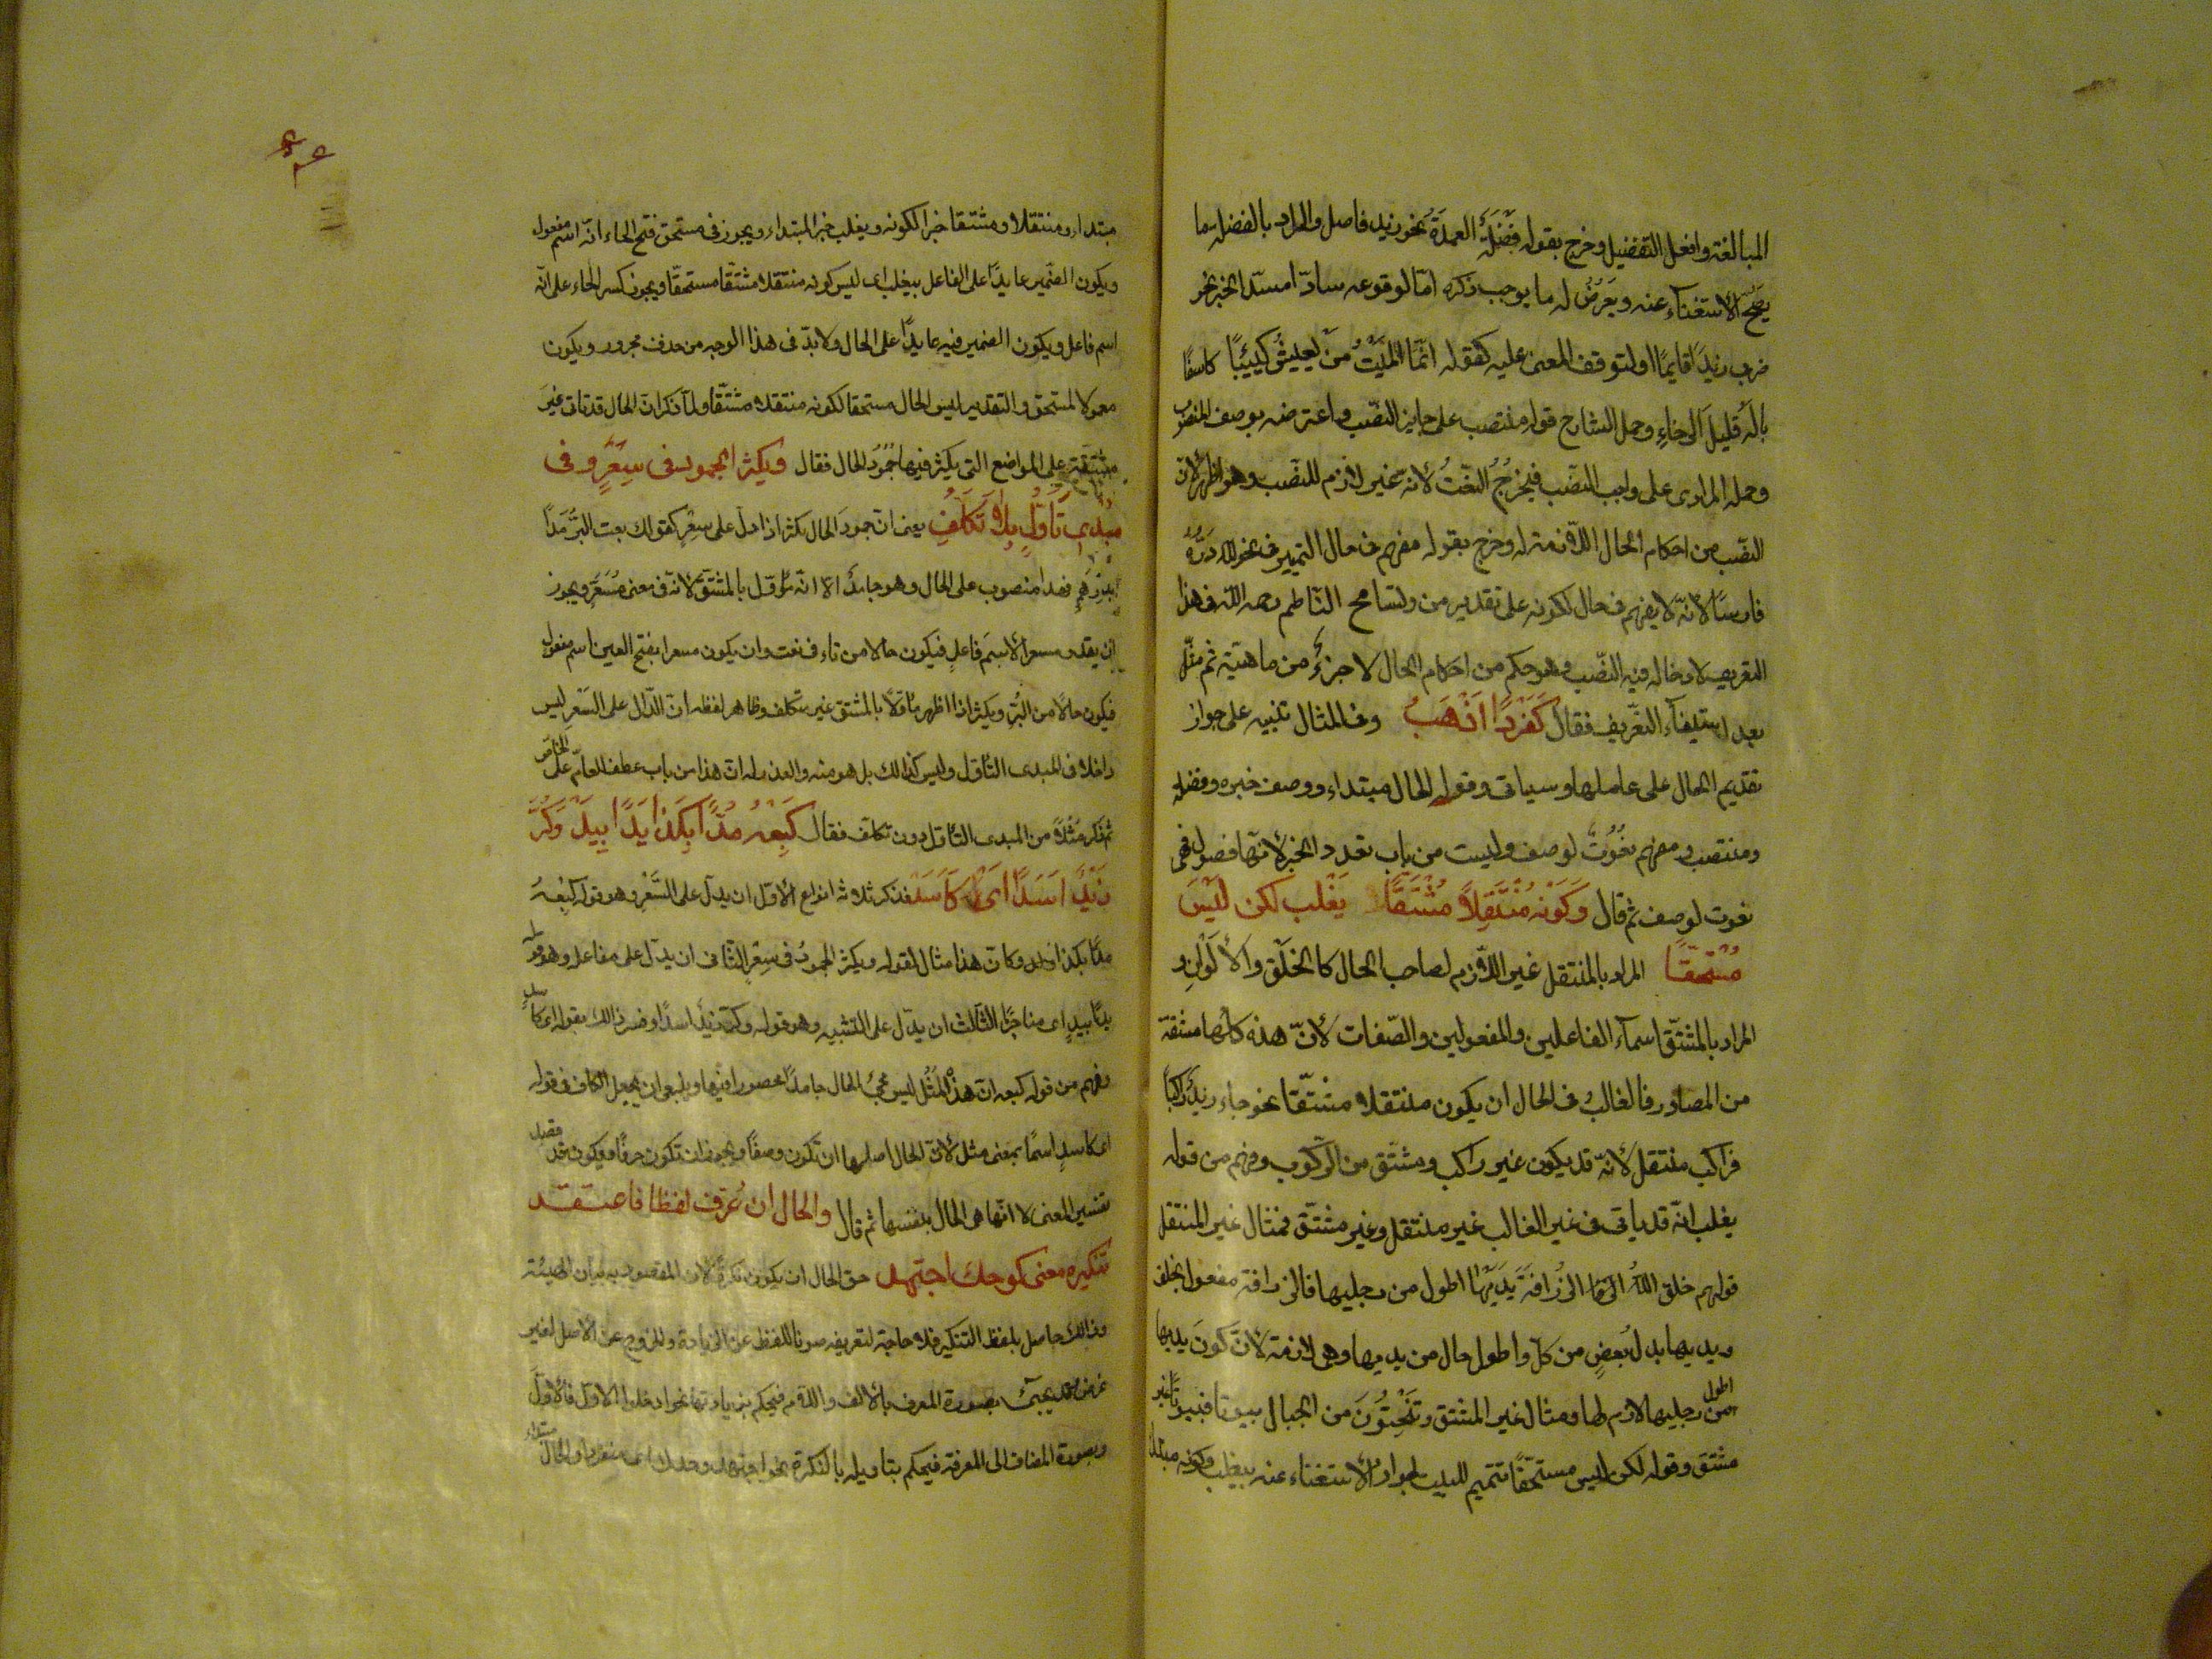 المبالغة وافعل التفضيل وخرج بقوله فَضْلَةٌ العمدَةُ نحو زيد فاضل والمراد بالفضله ما
يَصِحّ الاستغنآء عنه ويَعَرِضُ له ما يوجب ذكره امّا لوقوعه سادّا مسدّ الخبر نحو
ضربى زيدًا قايمًا اولتوقف المعنى عليه كقوله انّما المَيْتُ من يَعِيشُ كَئِيبًا كاسفًا
بالُهُ قليلَ الرخاءِ وحمل الشارح قوله منتصب على جايز النصّب واعترضه بوصف المنصوب
وحمله المرادى على واجب النصّب فيخرُجُ النعتُ لانه غير لازم للنصب وهو اظهر لانّ
النصّب من احكام الحال اللازمة له وخرج بقوله مفهم فى حال التمييز فى نحو لله دَرُّهُ
فارسًا لانّه لا يفهم فى حال لكونه على تقدير من وتسامح النّاظم رحمه الله فى هذا
التعريف لادخاله فيه النصّب وهو حكم من احكام الحال لا جزءٌ من ماهيّته ثم مثّل
بعد استيفآء التعّريف فقال كَفَرْدًا اَذْهَبُ وفى المثال تنبيه على جواز
تقديم الحال على عاملها وسياتى وقوله الحال مبتداء ووصف خبره وفضلة
ومنتصب ومفهم نعُوُتٌ لوصف وليست من باب تعدد الخبر لانّها فصول فهى
نعوت لوصف ثم قال وَكَوْنُه مُنْتَقِلاً مُشْتَقًّا يَغْلِب لكن لَيْسَ
مُسْتَحَقّاً المراد بالمنتقل غير اللاّزم لصاحب الحال كالخَلْق والألوَانِ و
المراد بالمشتّق اسمآء الفاعلين والمفعولين والصّفات لأنّ هذه كلّها مشتقة
من المصادر فالغالبُ فى الحال ان يكون منتقلا مشتّقا نحو جاء زيدٌ راكبًا
فراكب منتقل لأنّه قد يكون غير راكب ومشتّق من الرّكوب وفهم من قوله
يغلب انّه قد ياتى فى غير الغالب غير منتقل وغير مشتّق فمثال غير المنتقل
قولهم خلق اللهُ الزُرافةَ يَدَيْهَا اطول من رجليها فالزرافة مفعول بخلق
ويديها بدلُ بَعضٍ من كلّ واطول حال من يديها وهى لازمة لأنّ كونَ يديها
اطول من رجليها لازم لها ومثال غير المشتق وتَنْحِتُونَ من الجبال بيوتا فبيوتًا غير
مشتق وقوله لكن ليس مستحّقًا تتميم للبيت لجواز الاستغناء عنه بيغلب وكونه مبتدا
مبتداء ومنتقلا ومشتقا خبرا لكونه ويغلب خبر المبتداء ويجوز فى مستحق فتح الحاء انّه اسم مفعول
ويكون الضمير عايدًا على الفاعل بيغلب اى ليس كونه منتقلا مشتقّا مستحقّا ويجوز كسر الحاء على انّه
اسم فاعل ويكون الضمير فيه عايدًا على الحال ولابدّ فى هذا الوجه من حذف مجرور ويكون
معمولا لمستحق والتقدير ليس الحال مستحقا لكونه منتقلا مشتقّا ولمّا ذكر ان الحال قد تاتى غيرَ
مشتقّة على المواضع التى يكثر فيها جُمُودُ الحال فقال ويكثر الجمود فى سِعْرٍ وفى
مُبْدِى تَأَوُّلٍ بِلاَ تَكَلُّفِ يعنى انّ جمودَ الحال يكثر اذا دلّ على سِعْرٍ كقولك بعت البُرَّ مُدًّا
بدِرْهَمٍ فمدا منصوب على الحال وهو جامدٌ الا انّه مُؤَوّل بالمشتقّ لانّه فى معنى مُسَعَّرٍ ويجوز
ان يقدر مسعرا لاسم فاعلٍ فيكون حالا من تاء فى بعت وان يكون مسعرا بفتح العين اسم مفعول
فيكون حالاً من البُرّ ويكثر اذا اظهر مأوّلاً بالمشتق غير تكلف وظاهر لفظه انّ الدّال على السّعرِ ليس
داخلا فى المبدى التأوّل وليس كذالك بل هو منه والعذر له انّ هذا من باب عطف العامّ على الخاصّ
ثم ذكر مُثُلاً من المبدى التأوّل دون تكلّف فقال كَبِعْهُ مُدًّا بِكَذا يَدًا بِيَدْ وَكَرَّ
زَيْدٌ اَسَدًا اَىْ كَأَسَدْ فذكر ثلاثة انواع الأوّل ان يدلّ على السّعر وهو قوله كبِعْهُ
مدّا بكذا وكانّ هذا مثال لقوله ويكثر الجمودُ فى سِعْرٍ الثّانى ان يدّل على مفاعلة وهو قوله
يدًا بيدٍ اى مناجزًا الثالث ان يدّل على التشبيه وهو قوله وكرّ زيدٌ اسدًا وفسر ذالك بقوله اى كاسدٍ
وفهم من قوله كبعه انّ هذه المُثُل ليس مجئُ الحال جامدًا محصورا فيها وينبغى ان يجعل الكاف فى قوله
اى كاسدٍ اسمًا بمعنى مثل لأنّ الحال اصلها ان تكون وصفًا ويجوز ان تكون حرفًا ويكون قد قصد
تفسير المعنى لا انّها هى الحال بنفسها ثم قال والحال ان عُرّف لفظا فاعتقد
تنكيره معنى كوحدك اجتهد حق الحال ان يكون نكرةً لانّ المقصود به بيان الهيئة
وذالك حاصل بلفظ التنكير فلا حاجة لتعريفه صونا للفظ عن الزيادة والخروج عن الاصل لغير
غرض وقد يجئ بصورة المعرف بالألف واللام فيحكم بزيادتها نحو ادخلوا الاوّل فالأوّلَ
وبصورة المضاف الى المعرفة فيحكم بتاويله بالنكرة نحو اجتهد وحدك اى منفردا والحال مبتداء